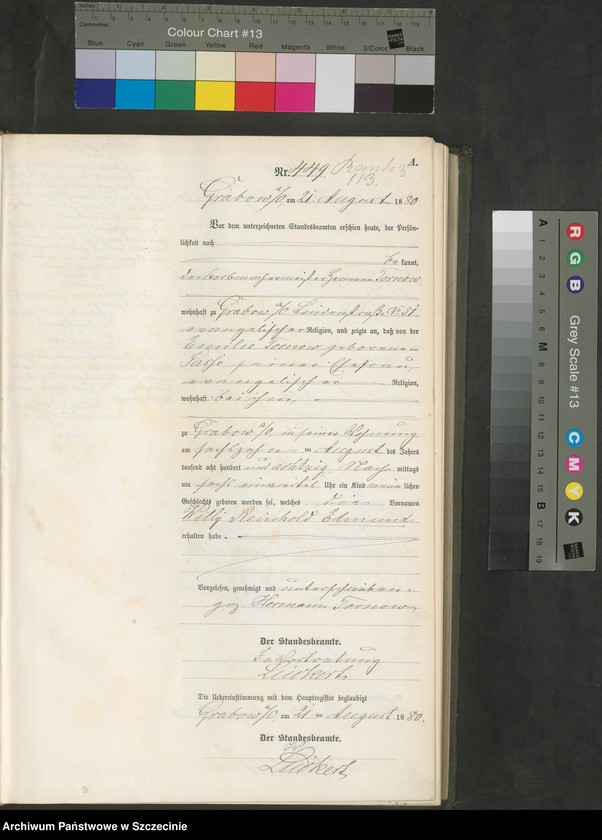 Colour Chart #13
Blue Cyan Green Yellow Red Magenta White 3/Color Black
A.
Nr. 449.
Grabow a/O am 21 August 1880
Vor dem unterzeichneten Standesbeamten erschien heute, der Persön-
lichkeit nach
be kannt,
der Korbmachermeister Hermann Tornow,
wohnhaft zu Grabow a/O Lindenstraße No 51
evangelischer Religion, und zeigte an, daß von der
Emilie Tornow geborenen
seiner Ehefrau,
evangelischer Religion,
wohnhaft bei ihm,
zu Grabow a/O in seiner Wohnung
am sechszehn ten August des Jahres
tausend acht hundert und achtzig Nach mittags
um sechs einviertel Uhr ein Kind männ lichen
Geschlechts geboren worden sei, welches die Vornamen
Willy Reinhold Edmund
erhalten habe.
Vorgelesen, genehmigt und unterschrieben.
gez Hermann Tornow
Der Standesbeamte.
In Vertretung
Lückert
Die Uebereinstimmung mit dem Hauptregister beglaubigt
Grabow a/O am 21 ten August 1880.
Der Standesbeamte.
Lückert
Grey Scale #13
R G B
C M Y K
A 1 2 3 4 5 6 M 8 9 10 11 12 13 14 15 B 17 18 19
Archiwum Państwowe w Szczecinie